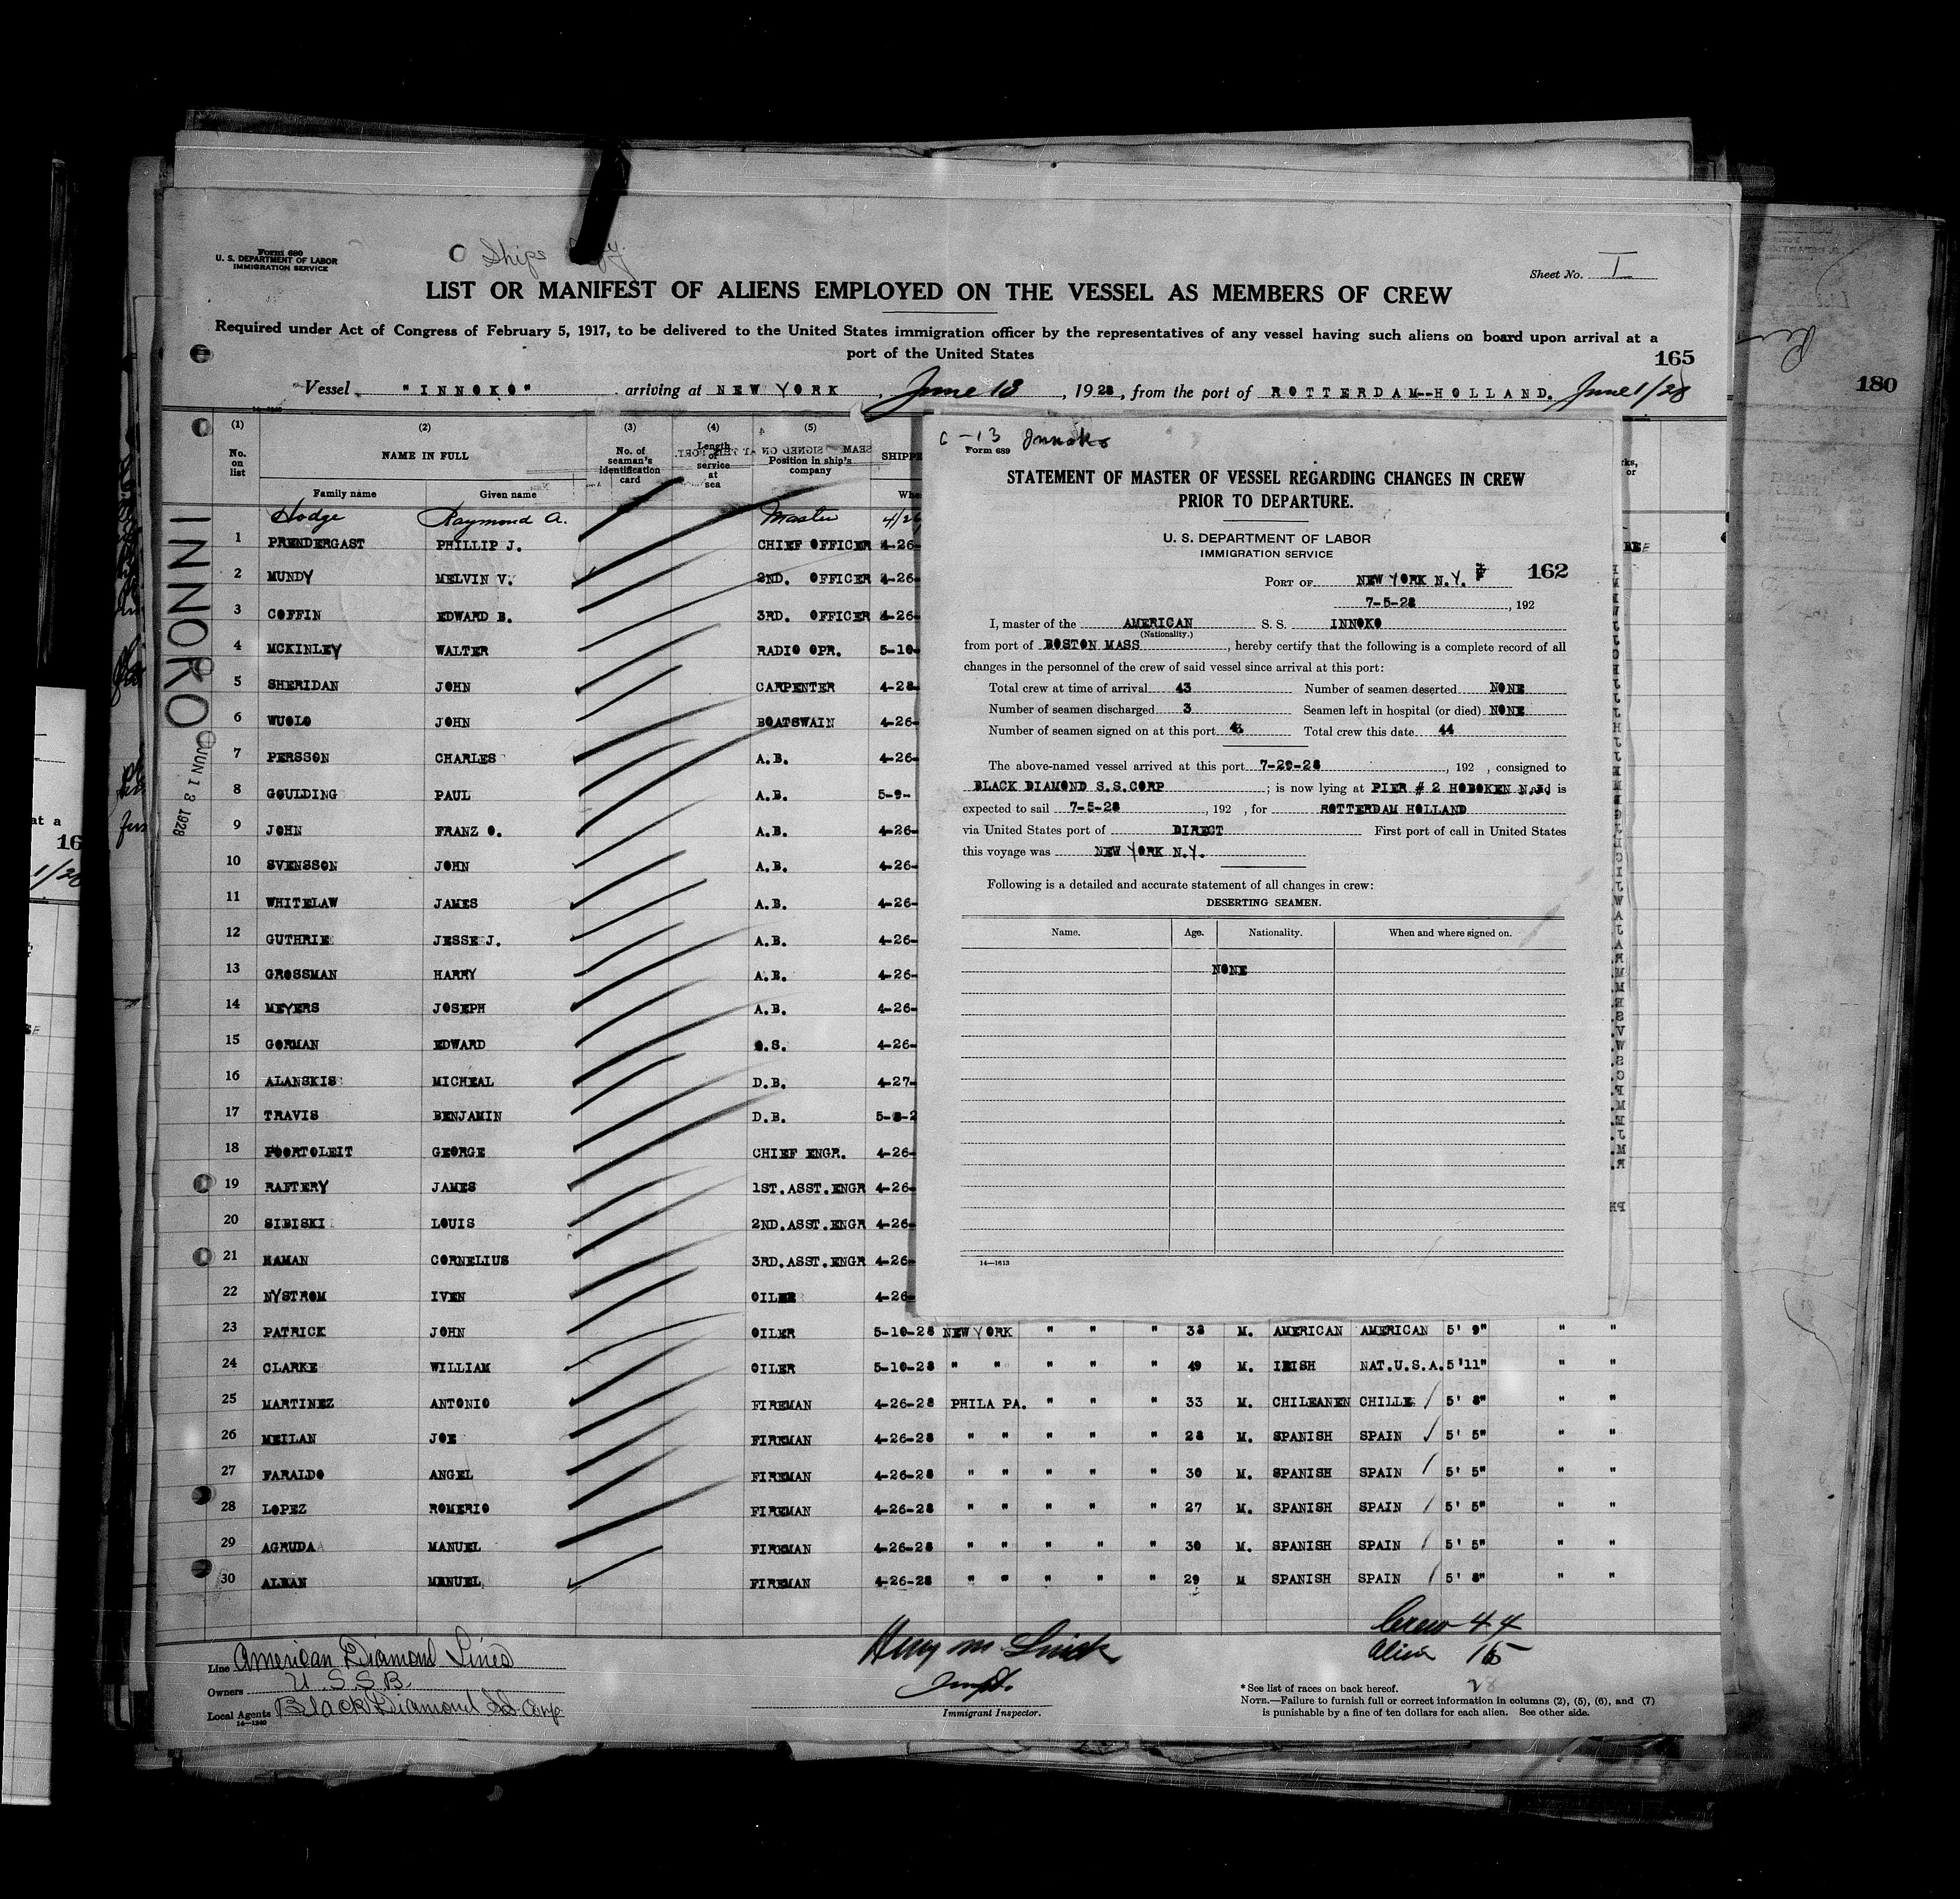 Form 680
U. S. DEPARTMENT OF LABOR
IMMIGRATION SERVICE
Ships Copy
Sheet No. I
LIST OR MANIFEST OF ALIENS EMPLOYED ON THE VESSEL AS MEMBERS OF CREW
Required under Act of Congress of February 5, 1917, to be delivered to the United States immigration officer by the representatives of any vessel having such aliens on board upon arrival at a
port of the United States
165
180
Vessel "INNOKO" arriving at NEW YORK, June 13, 1928, from the port of ROTTERDAM--HOLLAND. June 1/28
14—1240
(1) (2) (3) (4) (5)
No. on list NAME IN FULL No. of seaman's identification card Length of service at sea Position in ship's company SHIPPE
Family name Given name Whe
Hodge Raymond A. Master 4/26
1 PRENDERGAST PHILLIP J. CHIEF OFFICER 4-26-
2 MUNDY MELVIN V. 2ND. OFFICER 4-26-
3 COFFIN EDWARD B. 3RD. OFFICER 4-26-
4 MCKINLEY WALTER RADIO OPR. 5-10-
5 SHERIDAN JOHN CARPENTER 4-28-
6 WUOLO JOHN BOATSWAIN 4-26-
7 PERSSON CHARLES A.B. 4-26-
8 GOULDING PAUL A.B. 5-9-
9 JOHN FRANZ O. A.B. 4-26-
10 SVENSSON JOHN A.B. 4-26-
11 WHITELAW JAMES A.B. 4-26-
12 GUTHRIE JESSE J. A.B. 4-26-
13 GROSSMAN HARRY A.B. 4-26-
14 MEYERS JOSEPH A.B. 4-26-
15 GORMAN EDWARD O.S. 4-26-
16 ALANSKIS MICHEAL D.B. 4-27-
17 TRAVIS BENJAMIN D.B. 5-8-2
18 POORTOLEIT GEORGE CHIEF ENGR. 4-26-
19 RAFTERY JAMES 1ST.ASST.ENGR 4-26-
20 SIBISKI LOUIS 2ND.ASST.ENGR 4-26-
21 HAMAN CORNELIUS 3RD.ASST.ENGR 4-26-
22 NYSTROM IVEN OILER 4-26-
23 PATRICK JOHN OILER 5-10-28 NEW YORK " " " 38 M. AMERICAN AMERICAN 5' 9" " "
24 CLARKE WILLIAM OILER 5-10-28 " " " " " 49 M. IRISH NAT.U.S.A. 5'11" " "
25 MARTINEZ ANTONIO FIREMAN 4-26-28 PHILA PA. " " " 33 M. CHILEANEN CHILLE 5' 8" " "
26 MEILAN JOE FIREMAN 4-26-28 " " " " " 28 M. SPANISH SPAIN 5' 5" " "
27 FARALDO ANGEL FIREMAN 4-26-28 " " " " " 30 M. SPANISH SPAIN 5' 5" " "
28 LOPEZ ROMERIO FIREMAN 4-26-28 " " " " " 27 M. SPANISH SPAIN 5' 5" " "
29 AGRUDA MANUEL FIREMAN 4-26-28 " " " " " 30 M. SPANISH SPAIN 5' 5" " "
30 ALBAN MANUEL FIREMAN 4-26-28 " " " " " 29 M SPANISH SPAIN 5' 8" " "
INNOKO
JUN 13 1928
Crew 44
Alien 15
28
Line American Diamond Lines
Owners U.S.S.B.
Local Agents Black Diamond SS. Corp.
14—1240
Inspt.
Immigrant Inspector.
* See list of races on back hereof.
NOTE.—Failure to furnish full or correct information in columns (2), (5), (6), and (7)
is punishable by a fine of ten dollars for each alien. See other side.
6-13 Innoko
Form 689
STATEMENT OF MASTER OF VESSEL REGARDING CHANGES IN CREW
PRIOR TO DEPARTURE.
U. S. DEPARTMENT OF LABOR
IMMIGRATION SERVICE
162
PORT OF NEW YORK N.Y.
7-5-28, 192
I, master of the AMERICAN S. S. INNOKO
(Nationality.)
from port of BOSTON MASS, hereby certify that the following is a complete record of all
changes in the personnel of the crew of said vessel since arrival at this port:
Total crew at time of arrival 43 Number of seamen deserted NONE
Number of seamen discharged 3 Seamen left in hospital (or died) NONE
Number of seamen signed on at this port Total crew this date 44
The above-named vessel arrived at this port 7-29-28, 192 , consigned to
BLACK DIAMOND S.S.CORP; is now lying at PIER # 2 HOBOKEN N.J. and is
expected to sail 7-5-28, 192 , for ROTTERDAM HOLLAND
via United States port of DIRECT First port of call in United States
this voyage was NEW YORK N.Y.
Following is a detailed and accurate statement of all changes in crew:
DESERTING SEAMEN.
Name. Age. Nationality. When and where signed on.
NONE
14—1613